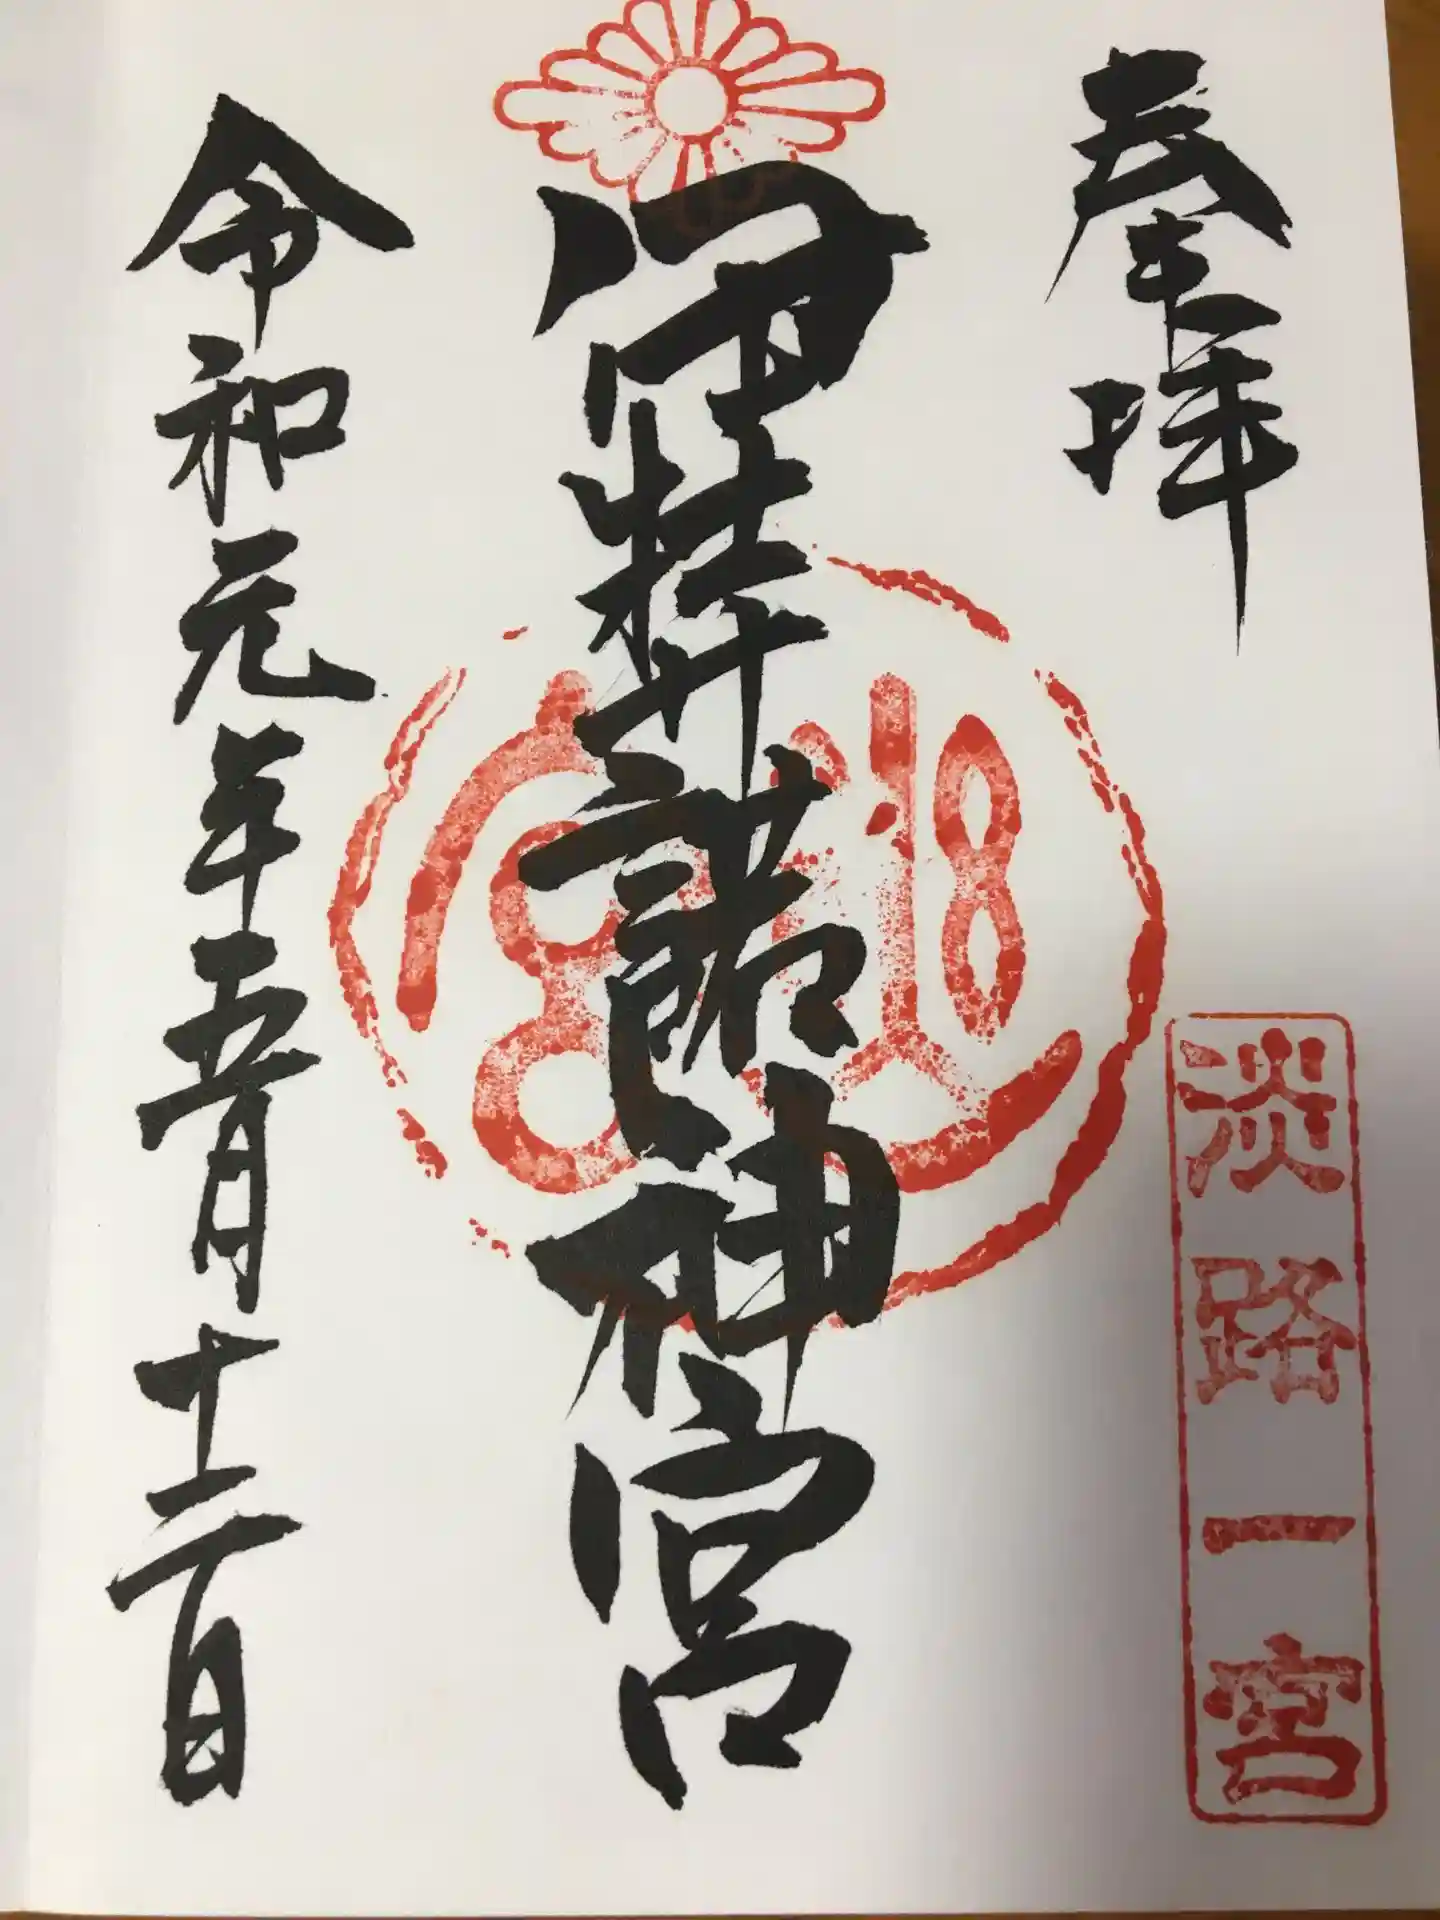 奉拝
淡路一宮
伊弉諾神宮
令和元年五月十二日